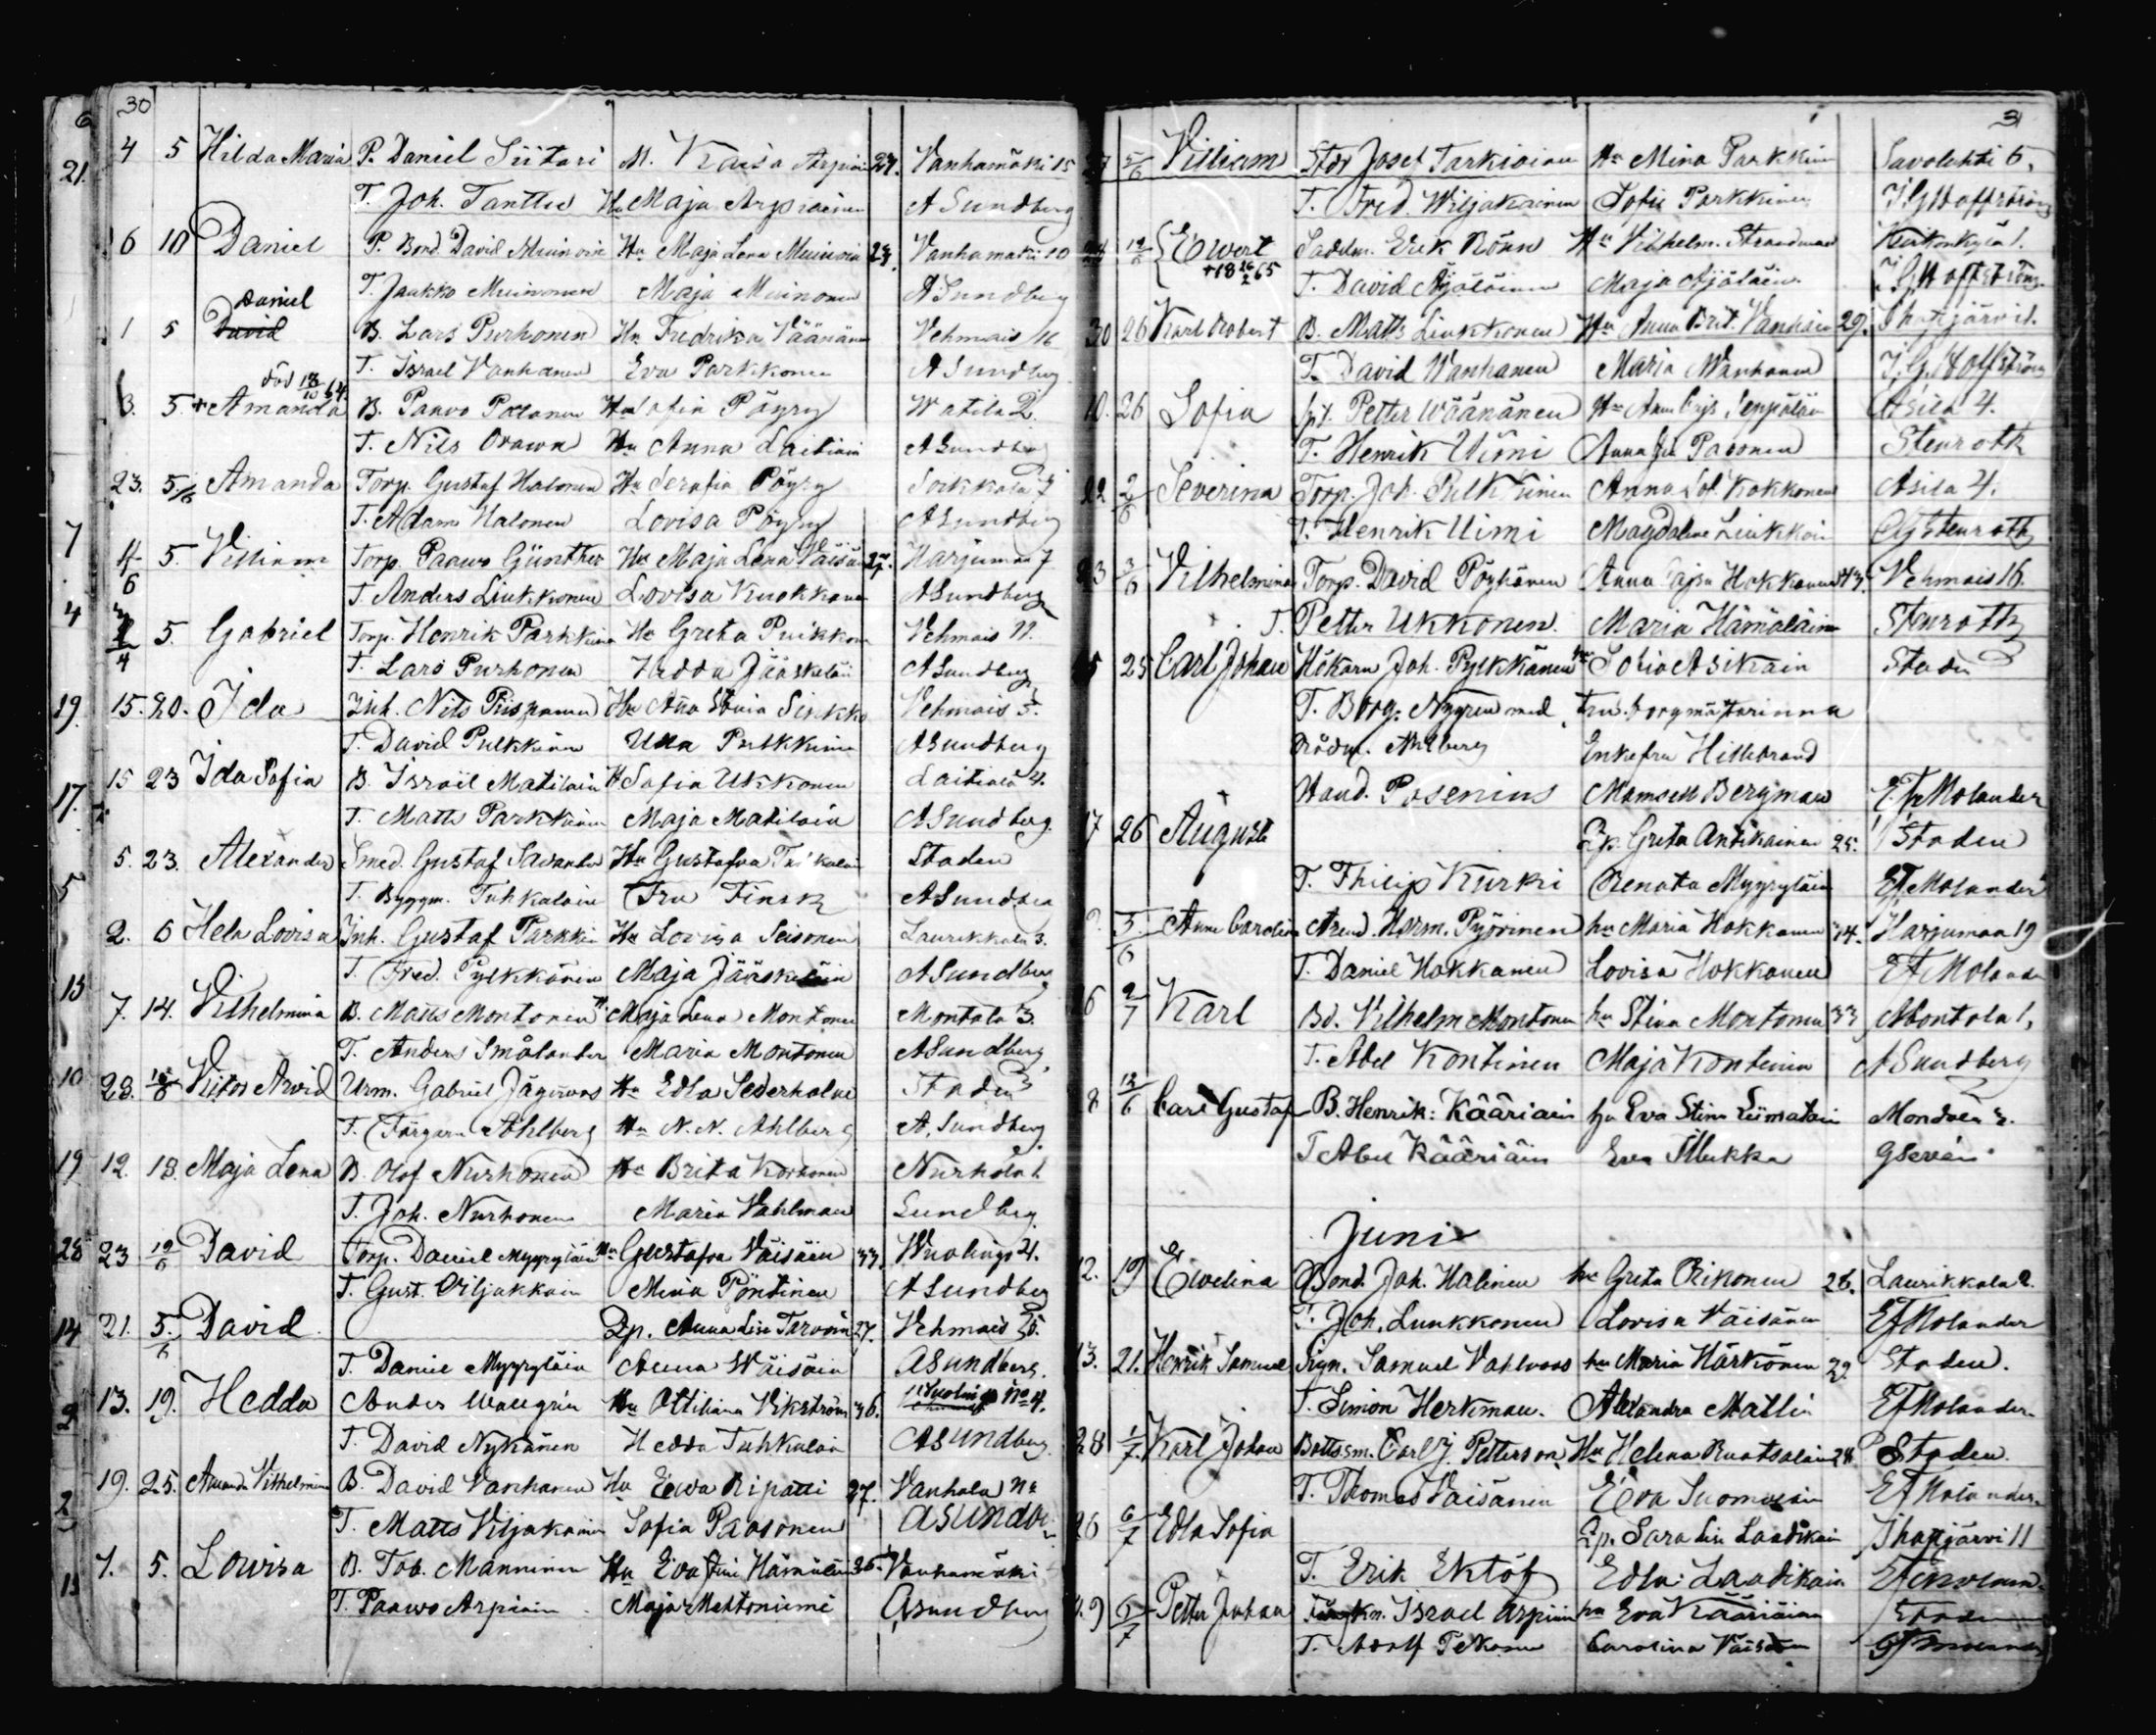 30
4 5 Hilda Maria P. Daniel Siitari M. Kaisa Arpiain 24. Vanhamäki 15
T. Joh. Tanttu Hu Maja Arpiainen A Sundberg
6 10 Daniel P. Bond. David Muinoin Hu Maja Lena Muinoin 23. Vanhamäki 10
T. Jaakko Muinonen Maja Muinonen A Sundberg
Daniel
1 5 David B. Lars Purhonen Hu Fredrika Väänänen Vehmais 16
T. Israel Vanhanen Eva Parkkonen A Sundberg
död 18/10 64.
3. 5. + Amanda B. Paavo Polonen Hu Sofia Pöyry Watila 2.
T. Nils Orawa Hu Anna Laitiain A Sundberg
23. 5/6 Amanda Torp. Gustaf Halonen Hu Serafia Pöyry Soikkala 7
T. Adam Halonen Lovisa Pöyry A Sundberg
4/6 5. Villiam Torp. Paawo Günther Hu Maja Lena Väisän 27. Harjumaa 7
T. Anders Liukkonen Lovisa Kuokkanen A Sundberg
4 5. Gabriel Torp. Henrik Parkkinen Hu Greta Puikkonen Vehmais 11.
T. Lars Purhonen Hedda Jääskeläi A Sundberg
15. 20. Ida Inh. Nils Piispanen Hu Anna Stina Sirkko Vehmais 5.
T. David Pulkkinen Ulla Pulkkinen A Sundberg
15 23 Ida Sofia B. Israël Matilain H Sofia Ukkonen Laitiala 4.
T. Matts Parkkinen Maja Matilain A Sundberg.
5. 23. Alexander Smed. Gustaf Savander Hu Gustafva Tuhkalain Staden
T. Byggm. Tuhkalain Fru Finsk A Sundberg
2. 6 Hela Lovisa Inh. Gustaf Parkkin Hu Lovisa Seisonen Laurikkala 3.
T. Fred. Pylkkänen Maja Jääskeläin A Sundberg
7. 14. Vilhelmina B. Matts Montonen Maja Lena Montonen Montola 3.
T. Anders Smålander Maria Montonen A Sundberg
28. Victor Arvid Urm. Gabriel Jägerroos Hu Edla Sederholm Staden
T. Färgare Ahlberg Hu N. N. Ahlberg A. Sundberg
12. 18. Maja Lena B. Olof Nurhonen Hu Brita Korhonen Nurhola 1.
T. Joh. Nurhonen Maria Vahlman Sundberg
23 19/6 David Torp. Daniel Myyryläin Hu Gustafva Väisäin 33. Wuolingo 4.
T. Gust. Viljakkain Mina Pöntinen A Sundberg
21. 5./6 David Qp. Anna Lisa Tarvain 27. Vehmais 5.
T. Daniel Myyryläin Anna Wäisäin A Sundberg.
13. 19. Hedda Anders Wallgrén Hu Ottiliana Vikström 36. No 4.
T. David Nykänen Hedda Tuhkalain A Sundberg
19. 25. Amanda Vilhelmina B. David Vanhanen Hu Eewa Ripatti 27. Vanhala No
T. Matts Viljakainen Sofia Paasonen A Sundb
7. 5. Lowisa B. Tob. Manninen Hu Eva Stina Hämäläin 26. Vanhamäki
T. Paawo Arpiain Maja Mattoniemi A Sundberg
31
27 5/6 Villiam Josef Tarkiainen Hu Mina Parkkinen Savolahti 6.
T. Fred. Wiljakainen Sofie Parkkinen
12/6 Ewert Sadelm. Erik Rönn Hu Vilhelm. Strandman Kirkonkylä 1.
+18 16/2 65
T. David Äijäläinen Maja Äijäläin
30 26 Karl Robert B. Matts Liukkonen Hu Anna Brit. Vanhain 29. Ihatjärvi 1.
T. David Wanhanen Maria Wanhanen
10. 26 Sofia Petter Wäänänen Hu Anna Seppäläin Asila 4.
T. Henrik Uimi Anna Pasonen Stenroth
22 2/6 Severina Torp. Joh. Pulkkinen Anna Sof. Kokkonen Asila 4.
T. Henrik Uimi Magdalena Liukkoin Stenroth
23 3/6 Vilhelmina Torp. David Pöyhönen Anna Kajsa Hokkanen 43. Vehmais 16.
T. Petter Ukkonen. Maria Hämäläinen Stenroth
25 Carl Johan Hökarn Joh. Pylkkänen hu Sofia Asikain Staden
T. Borg. Nygren med fru. borgmästarinna
Rådm. Ahlberg Enkefru Hillebrand
Hand. Posenius Mamsell Bergman E. F. Molander
17 26 August Qp. Greta Antikainen 25. Staden
T. Philip Kurki Renata Myyryläin EF Molander
5/6 Anna Carolina Arend. Herm. Pyörinen hu Maria Hokkanen 34. Harjumaa 19
T. Daniel Hokkanen Lovisa Hokkanen EF Molander
16 2/7 Karl Bd. Vilhelm Montonen hu Stina Montonen 33 Montola 1.
T. Abel Kontinen Maja Kontinen A Sundberg
8 12/6 Carl Gustaf B. Henrik Kääriäin hu Eva Stina Liimatain
T Abel Kääriäin Eva Mukka
Juni
12. 19 Evelina Bond. Joh. Halinen hu Greta Reikonen 28. Laurikkala 2.
T. Joh. Luukkonen Lovisa Väisänen EF Molander
13. 21. Henrik Samuel Samuel Vahlroos hu Maria Härkönen 32. Staden.
T. Simon Herkman. Alexandra Matlin EF Molander
28 1/7 Karl Johan Båtssm. Carl J. Petterson Hu Helena Ruotsalain 28 Staden.
T. Thomas Väisänen Eva Suomalain EF Molander
26 6/7 Edla Sofia Qp. Sara Lis Laadikain Ihatjärvi 11
T. Erik Eklöf Edla Laadikain
9 Petter Johan Israel Arpiain hu Eva Kääriäinen Staden
T. Adolf Pekonen Carolina Väisänen